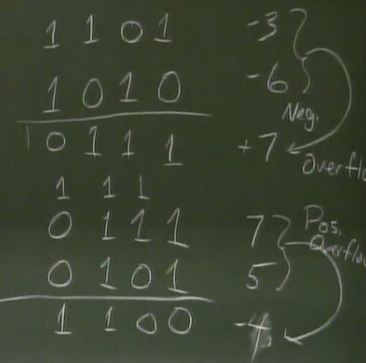 1 1 0 1 -3
1 0 1 0 -6
Neg.
1 0 1 1 1 +7
Overflo
1 1 1
0 1 1 1 7 Pos.
Overflo
0 1 0 1 5
1 1 0 0 -4